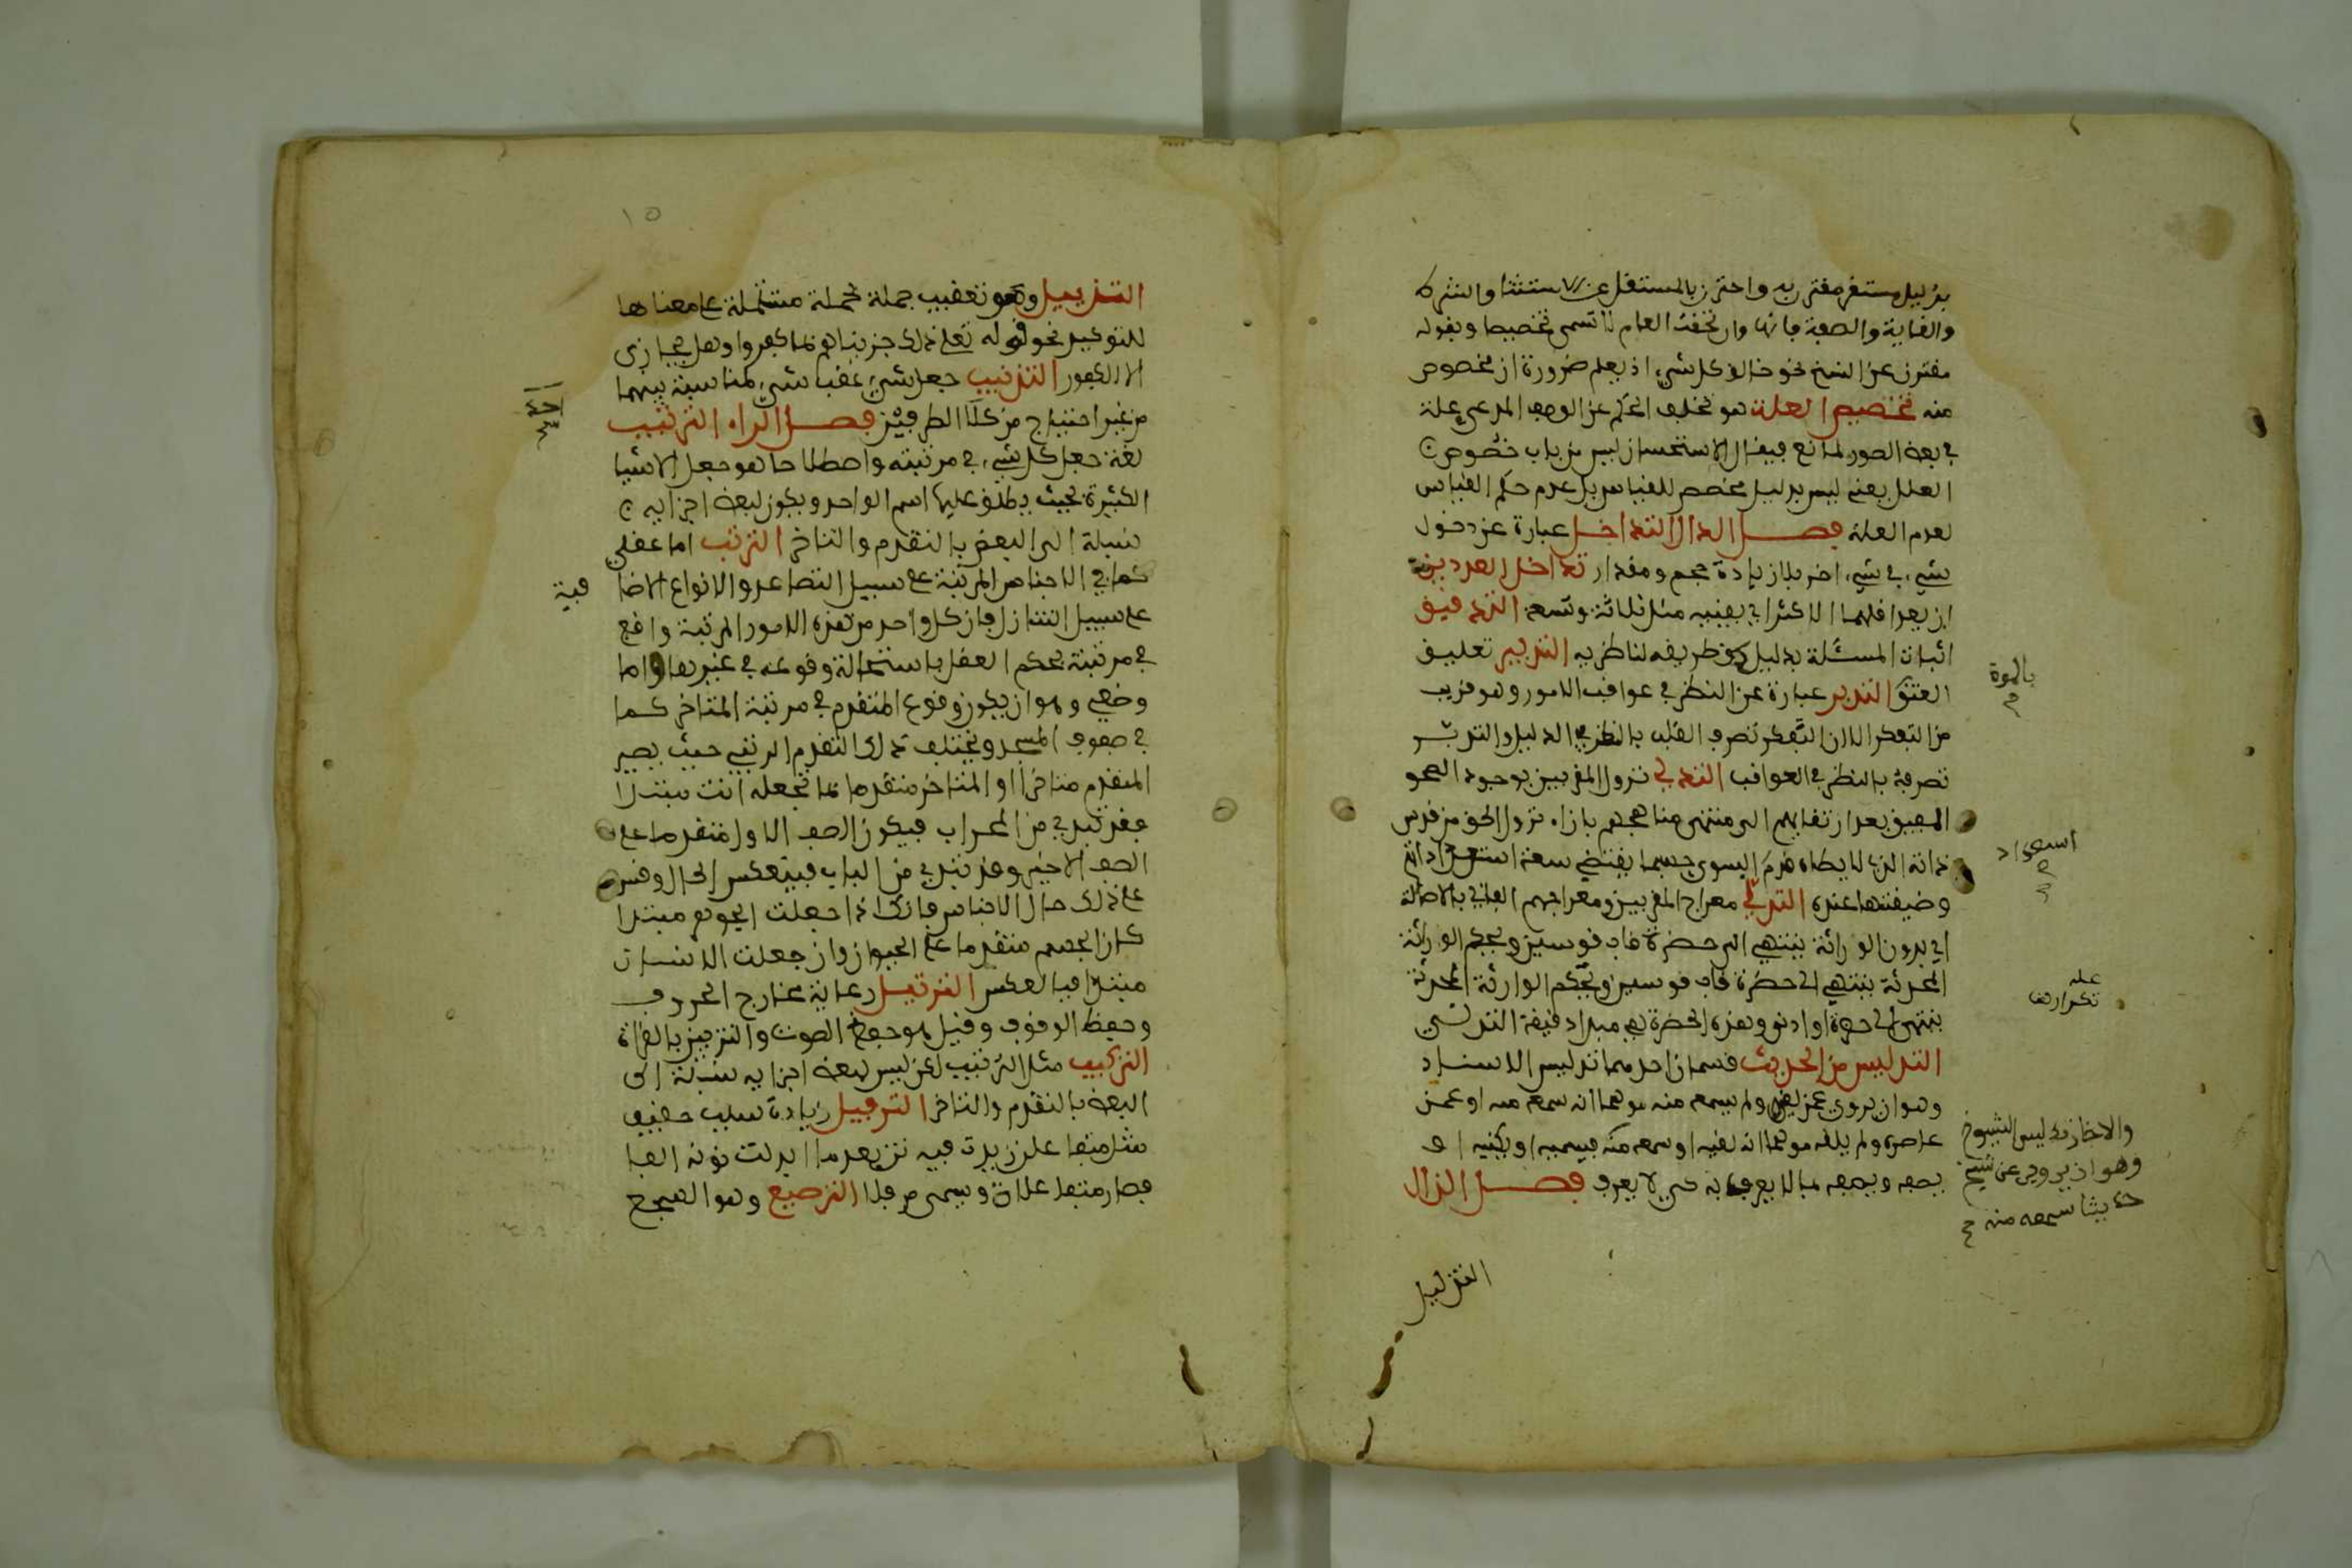 بدليل مستقل مقترن به واحترز بالمستقل عن الاستثنا والشرط
والغاية والصفة فانها وان لحقت العام لا تسمى تخصيصا وبقوله
مقترن عن النسخ نحو خالق كل شيء اذ يعلم ضرورة ان مخصوص
منه تخصيص العلة هو تخلف الحكم عن الوصف المدعى علة
في بعض الصور لمانع فيقال الاستحسان ليس من باب خصوص
العلل يعني ليس بدليل مخصص للقياس بل عدم حكم القياس
لعدم العلة فصل الدال التداخل عبارة عن دخول
شيء في شيء اخر بلا زيادة حجم ومقدار تداخل العددين
ان يعد اقلهما الاكثر اي يفنيه مثل ثلاثة وتسعة التدقيق
اثبات المسئلة بدليل دق طريقه لناظريه التدبير تعليق
العتق بالموت
التدبر عبارة عن النظر في عواقب الامور وهو قريب
من التفكر الا ان التفكر تصرف القلب بالنظر في الدليل والتدبر
تصرفه بالنظر في العواقب التدلي نزول المقربين بوجود الصحو
المفيق بعد ارتقايهم الى منتهى مناهجهم بازاء نزول الحق من قدس
ذاته الذي لا يطاه قدم السوى حسبما يقتضي سعة استعداداتهم
استعداد
وضيقتها عنده التدلي معراج المقربين ومعراجهم الغاي بالاصالة
اي بدون الوراثة ينتهي الى حضرة قاب قوسين وبحكم الوراثة
المحدثة ينتهي الى حضرة قاب قوسين وبحكم الوارثة المحدثة
عله
تكرار
ينتهي الى حضرة او ادنى وهذه الحضرة هي مبدا دقيقة التدلي
التدليس من الحديث قسمان احدهما تدليس الاسناد
وهو ان يروي عمن لقيه ولم يسمعه منه موهما انه سمعه منه او عمن
عاصره ولم يلقه موهما انه لقيه او سمعه منه
والاخر تدليس الشيوخ
وهو ان يروي عن شيخ
حديثا سمعه منه
فيسميه او يكنيه او
يصفه ويصفه بما لا يعرف به كي لا يعرف فصل الذال
التذييل
١٥
التذييل وهو تعقيب جملة بجملة مشتملة على معناها
للتوكيد نحو قوله تعلى ذلك جزيناهم بما كفروا وهل يجازى
الا الكفور التذنيب جعل شيء عقب شيء لمناسبة بينهما
من غير احتياج من كلا الطرفين فصل الراء الترتيب
لغة جعل كل شيء في مرتبته واصطلاحا هو جعل الاشيا
الكثيرة بحيث يطلق عليها اسم الواحد ويكون لبعض اجزايه
نسبة الى البعض بالتقدم والتاخر الترتب اما عقلي
كما في الاجناس المرتبة على سبيل التصاعد والانواع الاضا
فية
على سبيل التنازل فان كل واحد من هذه الامور المرتبة واقع
في مرتبة بحكم العقل باستحالة وقوعه في غيرها واما
وضعي وهو ان يكون وقوع المتقدم في مرتبة المتاخر كما
في صفوف المسجد ويختلف ذلك التقدم الرتبي حيث يصير
المتقدم متاخرا او المتاخر متقدما بما تجعله انت مبتدا
فقد تبتدي من المحراب فيكون الصف الاول متقدما على
الصف الاخير وقد تبتدي من الباب فينعكس الحال وقس
على ذلك حال الاجناس فانك اذا جعلت الجوهر مبتدا
كان الجسم متقدما على الحيوان وان جعلت الانسان
مبتدا فبالعكس الترتيل رعاية مخارج الحروف
وحفظ الوقوف وقيل هو حفظ الصوت والتزيين بالقراة
التركيب مثل الترتيب لكن ليس لبعض اجزايه نسبة الى
البعض بالتقدم والتاخر الترفيل زيادة سبب خفيف
مثل متفاعلن زيدت فيه تن بعد ما ابدلت نونه الفا
فصار متفاعلاتن ويسمى مرفلا الترصيع وهو السجع